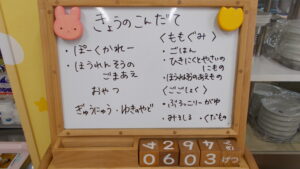 きょうのこんだて
・ぽーくかれー
・ほうれんそうの
ごまあえ
おやつ
ぎゅうにゅう・ゆきのやど
〈ももぐみ〉
・ごはん
・ひきにくとやさいの
にもの
〈ごごしょく〉
・ぶろっこりーがゆ
・みそしる ・くだもの
4 2 9 4
0 6 0 3 げつ